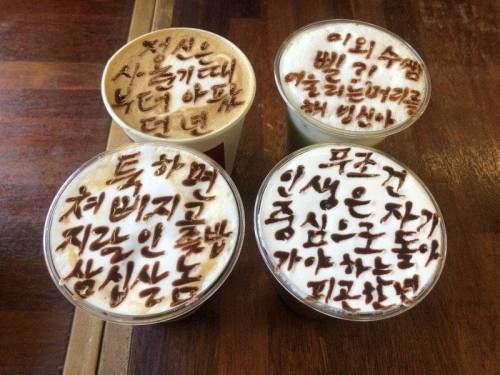 정신은
사춘기때
부터 아팠
던 년
이외수쌤
삘?!
어울리는머리를
해 빙신아
툭하면
쳐 삐지고
지랄인 좆밥
삼십살놈
무조건
인생은 자기
중심으로 돌아
가야하는
피곤한년